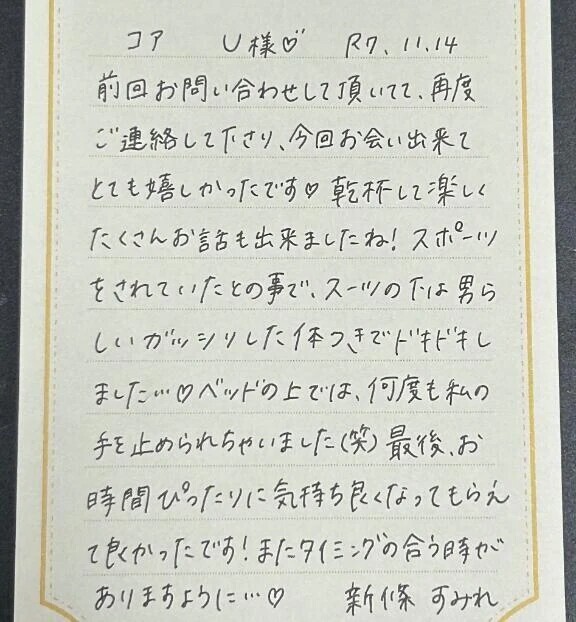 コア U様♡ R7.11.14
前回お問い合わせして頂いてて、再度
ご連絡して下さり、今回お会い出来て
とても嬉しかったです♡ 乾杯して楽しく
たくさんお話も出来ましたね! スポーツ
をされていたとの事で、スーツの下は男ら
しいガッシリした体つきでドキドキし
ました…♡ベッドの上では、何度も私の
手を止められちゃいました(笑) 最後、お
時間ぴったりに気持ち良くなってもらえ
て良かったです!またタイミングの合う時が
ありますように…♡ 新條 すみれ